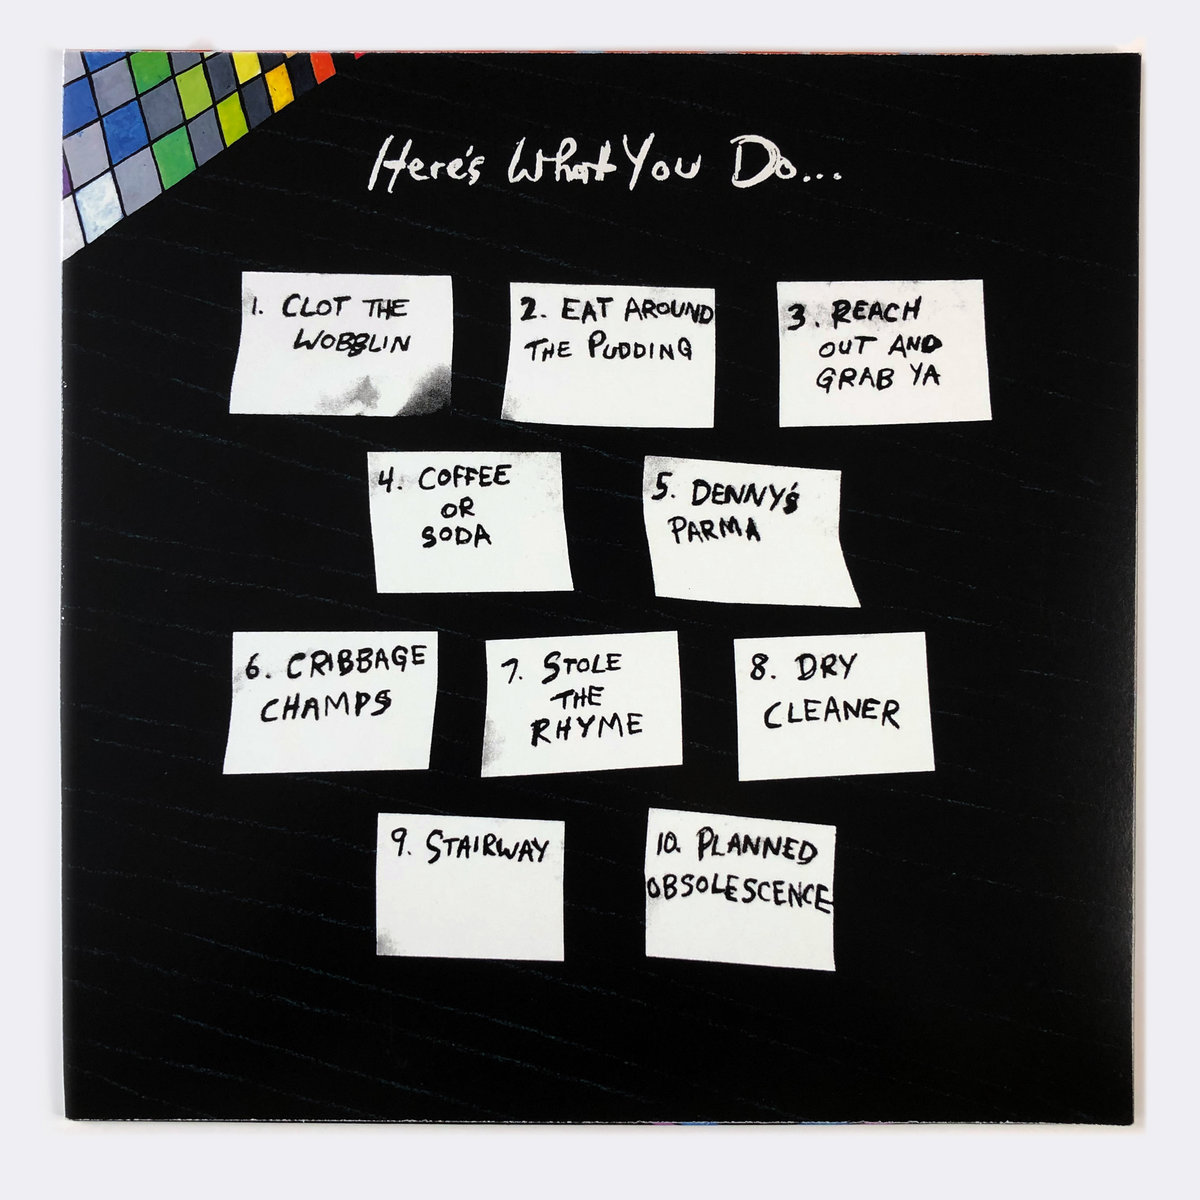 Here's What You Do...
1. CLOT THE
WOBBLIN
2. EAT AROUND
THE PUDDING
3. REACH
OUT AND
GRAB YA
4. COFFEE
OR
SODA
5. DENNY'S
PARMA
6. CRIBBAGE
CHAMPS
7. STOLE
THE
RHYME
8. DRY
CLEANER
9. STAIRWAY
10. PLANNED
OBSOLESCENCE